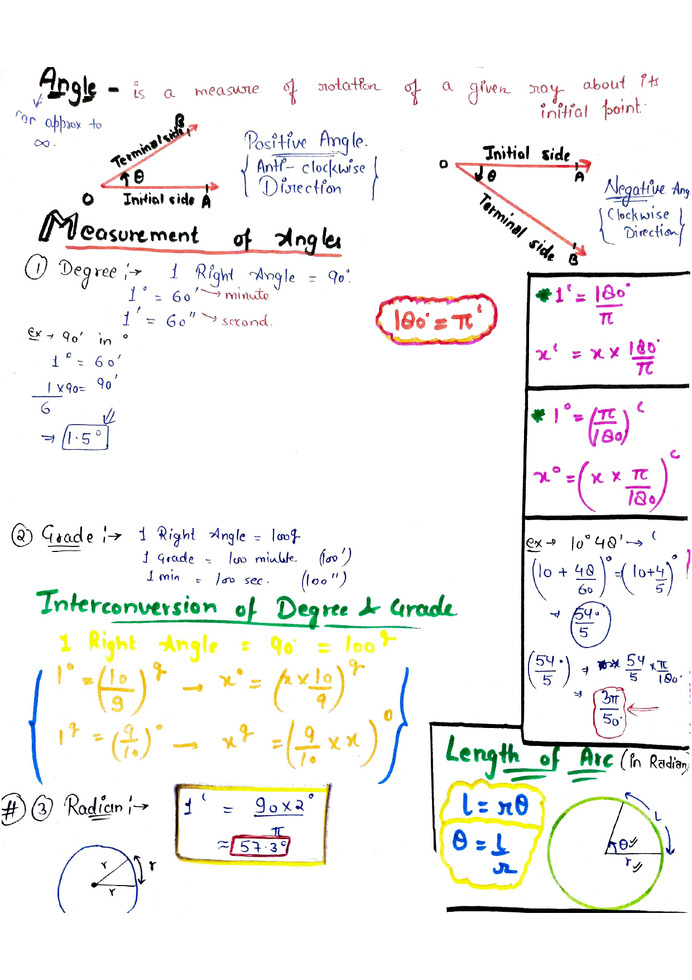 Angle - is a measure of rotation of a given ray about its
initial point.
can approx to
∞.
B
Terminal side
θ
O
Initial side A
Positive Angle.
{ Anti-clockwise
Direction }
O
Initial side
A
θ
Terminal side
B
Negative Ang
{ Clockwise
Direction }
Measurement of Angles
① Degree :→ 1 Right Angle = 90°
1° = 60' → minute
1' = 60" → second.
ex → 90' in °
1° = 60'
1/6 x90 = 90'
⇒ 1.5°
180° = πᶜ
* 1ᶜ = 180°/π
xᶜ = x × 180°/π
* 1° = (π/180)ᶜ
x° = (x × π/180)ᶜ
② Grade :→ 1 Right Angle = 100g
1 Grade = 100 minute. (100')
1 min = 100 sec. (100")
ex → 10° 48' → ᶜ
(10 + 48/60)° = (10+4/5)°
⇒ 54°/5
(54°/5) ⇒ 54/5 × π/180°
⇒ 3π/50
Interconversion of Degree & Grade
1 Right Angle = 90° = 100g
{ 1° = (10/9)g → x° = (x × 10/9)g
1g = (9/10)° → xg = (9/10 × x)° }
# ③ Radian :→ 1ᶜ = 90×2°/π
≈ 57.3°
r
r
r
Length of Arc (in Radian)
l = rθ
θ = l/r
θ
r
l